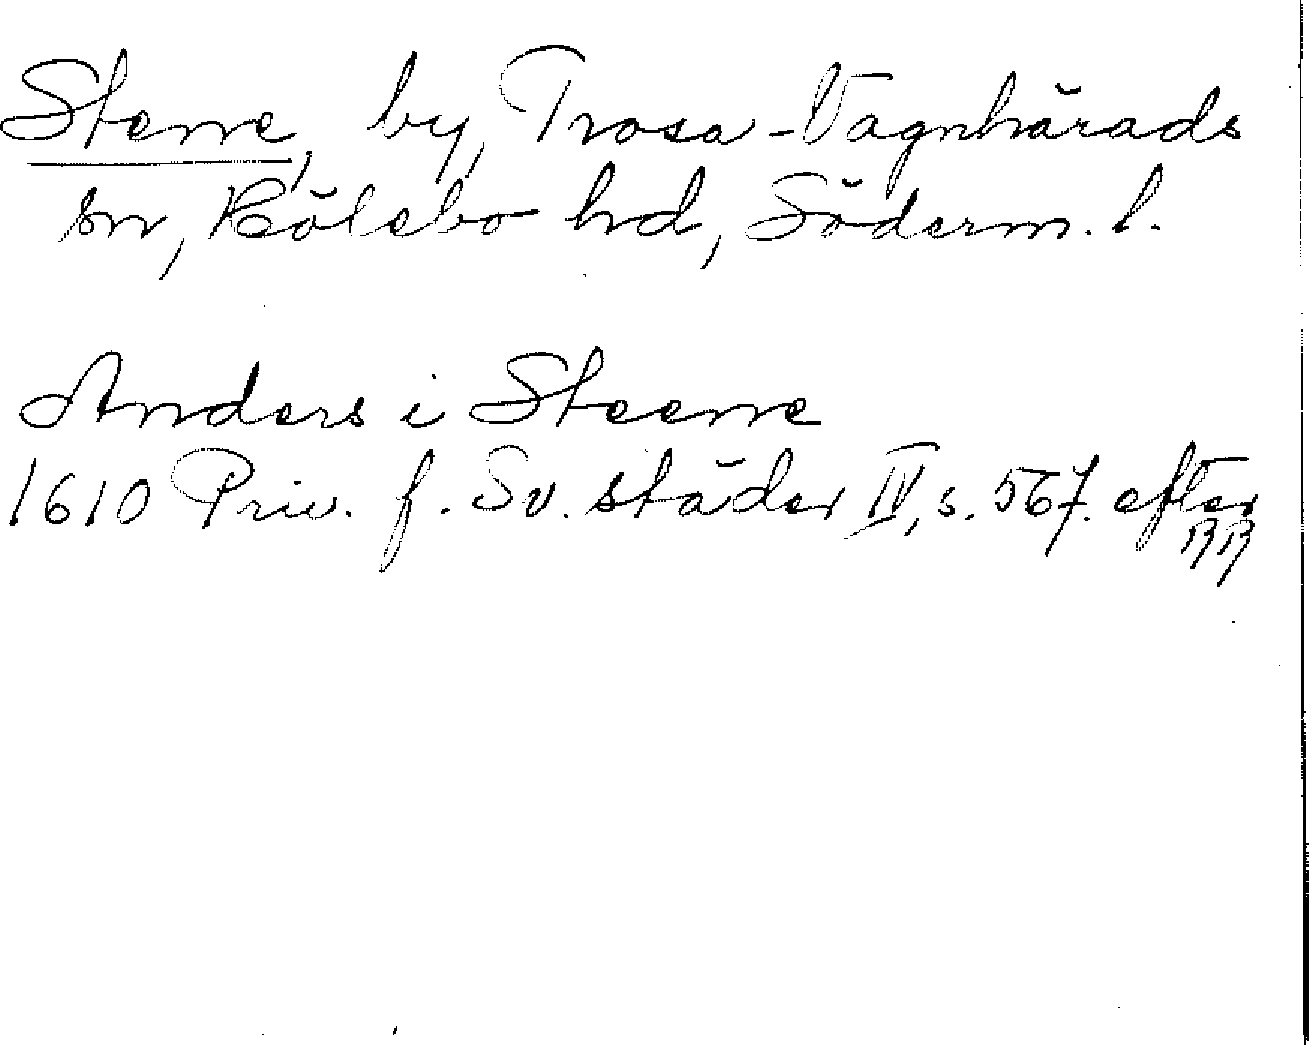 Stenne, by, Trosa-Vagnhärads
sn, Hölebo hd, Söderm. l.
Anders i Steenne
1610 Priv. f. Sv. städer IV, s. 567. efter
RR